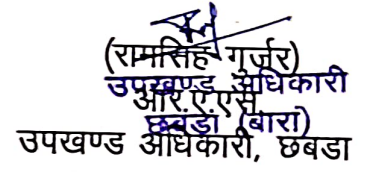 (रामसिंह गुर्जर)
उपखण्ड अधिकारी
आर.ए.एस
छबड़ा (बारा)
उपखण्ड अधिकारी, छबडा